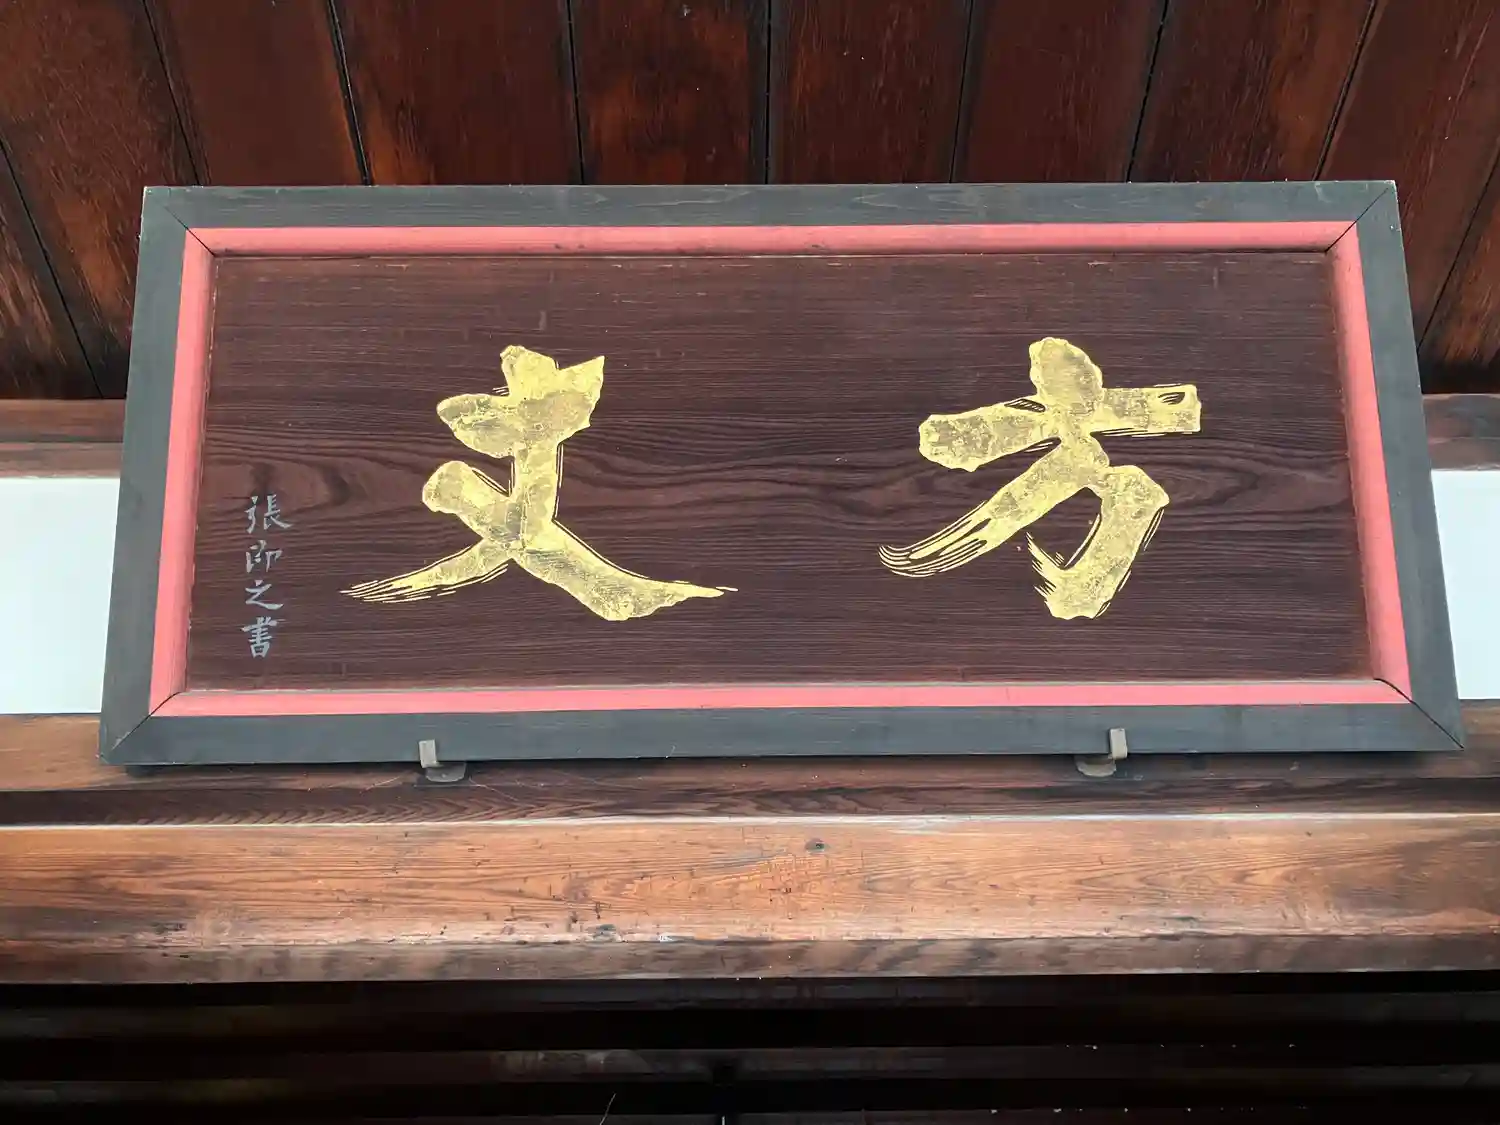 方丈
張即之書